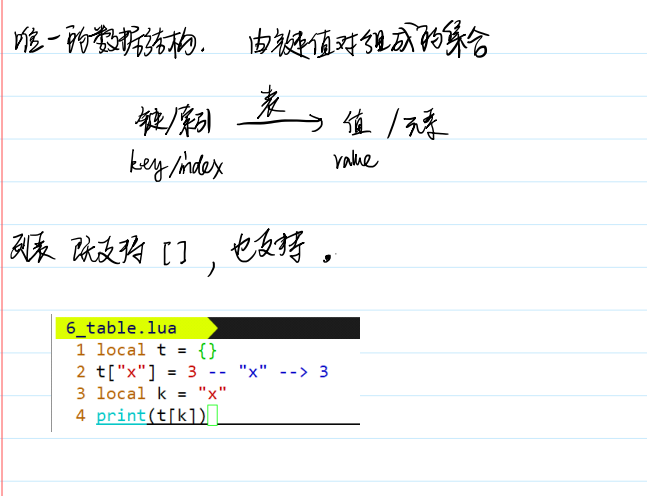 唯一的数据结构. 由键值对组成的集合
键/索引 表 值 /元素
key/index value
列表 既支持 [] , 也支持 .
6_table.lua
1 local t = {}
2 t["x"] = 3 -- "x" --> 3
3 local k = "x"
4 print(t[k])